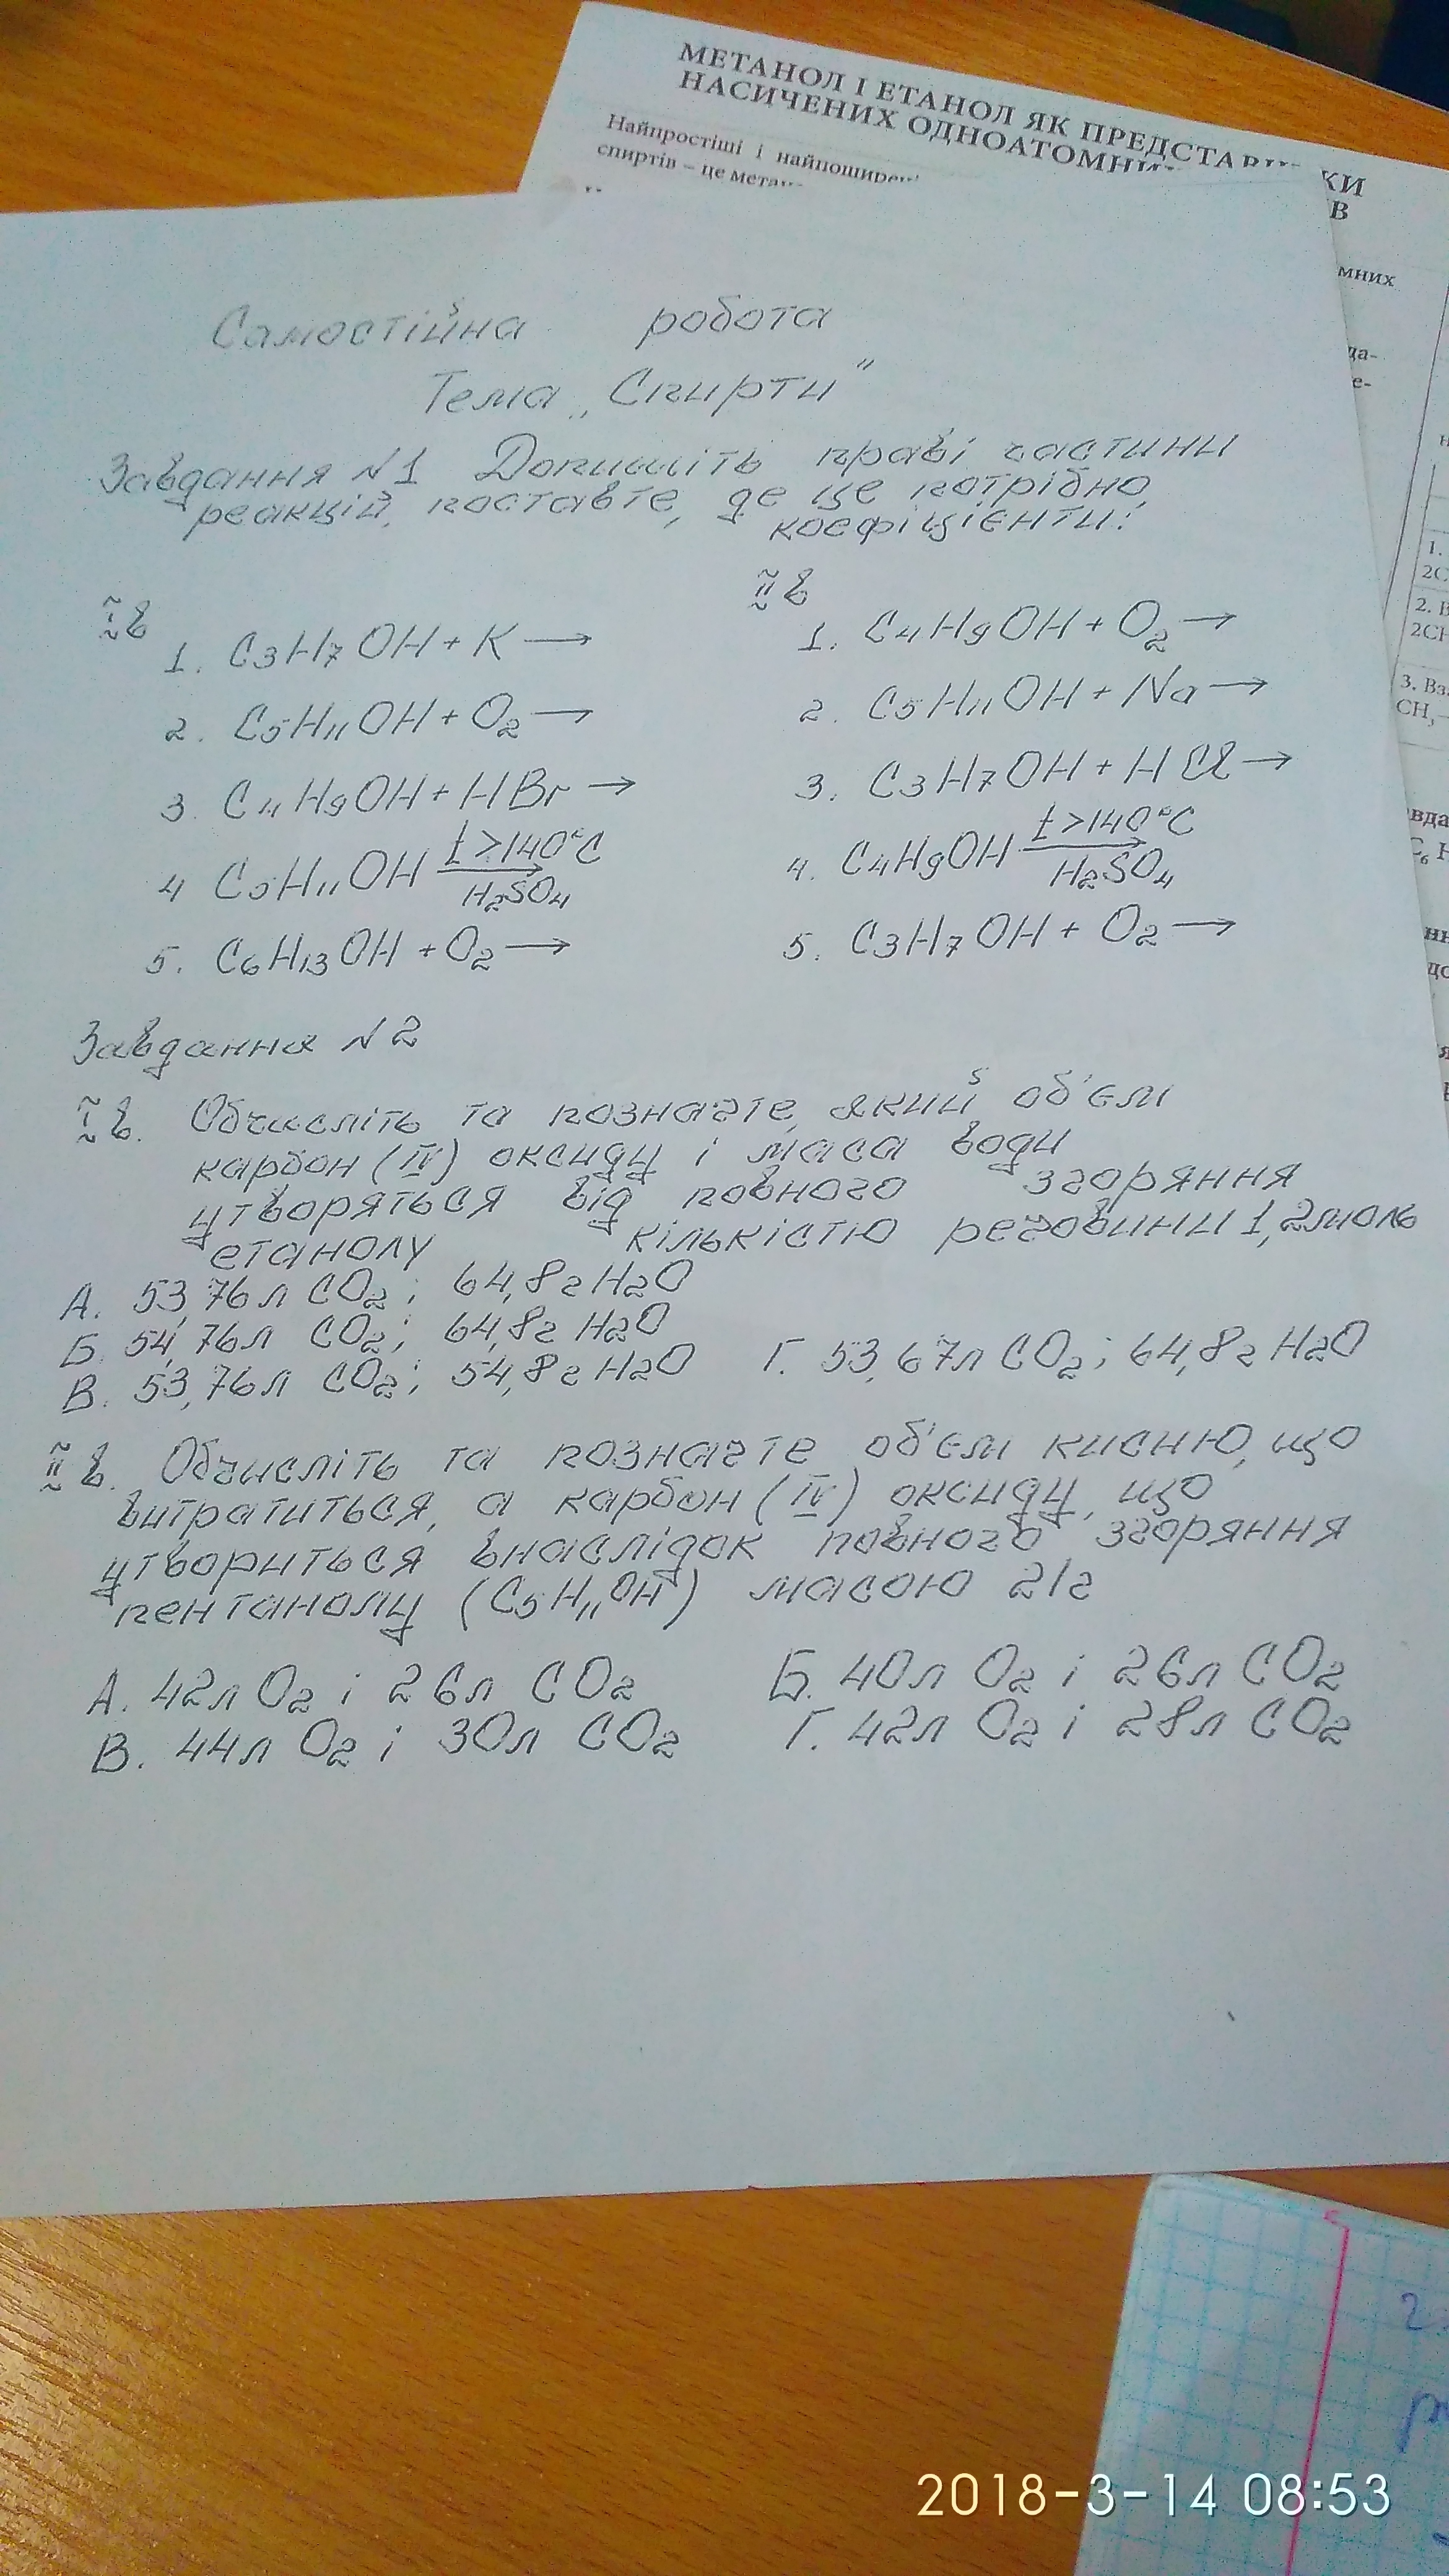 МЕТАНОЛ І ЕТАНОЛ ЯК
НАСИЧЕНИХ
Найпростіші і
спиртів – це
В
мних
Самостійна робота
Тема „Спирти"
Завдання №1 Допишіть праві частини
реакцій, поставте, де це потрібно,
коефіцієнти:
І в
1. C3H7OH + K →
2. C5H11OH + O2 →
3. C4H9OH + HBr →
4 C5H11OH t >140°C → H2SO4
5. C6H13OH + O2 →
ІІ в
1. C4H9OH + O2 →
2. C5H11OH + Na →
3. C3H7OH + HCl →
4. C4H9OH t >140°C → H2SO4
5. C3H7OH + O2 →
Завдання №2
І в. Обчисліть та позначте, який об'єм
карбон (IV) оксиду і маса води
утворяться від повного згоряння
етанолу кількістю речовини 1,2моль
А. 53,76л CO2; 64,8г H2O
Б. 54,76л CO2; 64,8г H2O
В. 53,76л CO2; 54,8г H2O Г. 53,67л CO2; 64,8г H2O
ІІ в. Обчисліть та позначте об'єм кисню, що
витратиться, а карбон (IV) оксиду, що
утвориться внаслідок повного згоряння
пентанолу (C5H11OH) масою 21г
А. 42л O2 і 26л CO2 Б. 40л O2 і 26л CO2
В. 44л O2 і 30л CO2 Г. 42л O2 і 28л CO2
2018-3-14 08:53